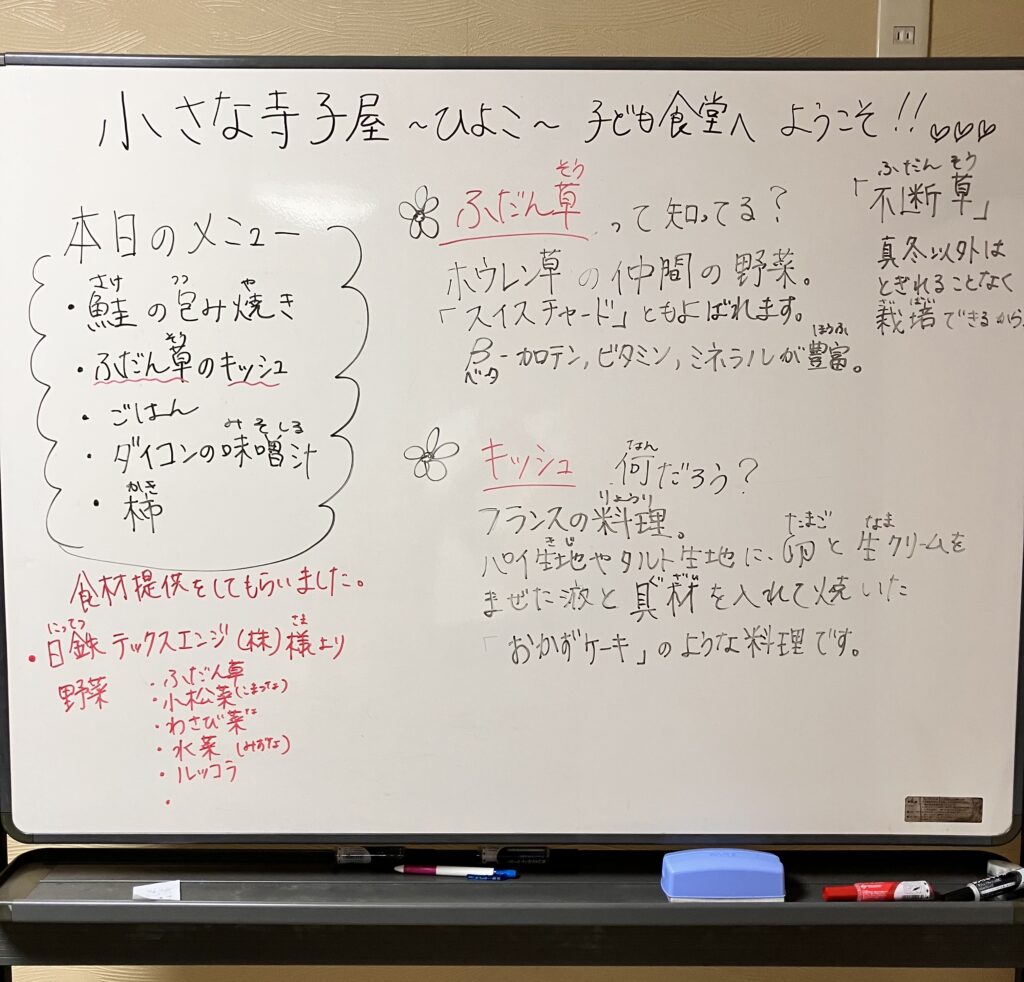 小さな寺子屋 ～ひよこ～ 子ども食堂へ ようこそ!!♡♡♡
本日のメニュー
・鮭の包み焼き
さけ つつ や
・ふだん草のキッシュ
そう
・ごはん
・ダイコンの味噌汁
みそしる
・柿
かき
食材提供をしてもらいました。
・日鉄テックスエンジ(株)様より
にってつ さま
野菜
・ふだん草
・小松菜(こまつな)
・わさび菜
な
・水菜 (みずな)
・ルッコラ
・
ふだん草 って知ってる？
そう
ホウレン草の仲間の野菜。
「スイスチャード」ともよばれます。
β-カロテン,ビタミン,ミネラルが豊富。
ベータ ほうふ
「不断草」
ふだん そう
真冬以外は
とぎれることなく
栽培できるから。
さいばい
キッシュ 何だろう？
なん
フランスの料理。
りょうり
パイ生地やタルト生地に、卵と生クリームを
きじ たまご なま
まぜた液と具材を入れて焼いた
ぐざい
「おかずケーキ」のような料理です。